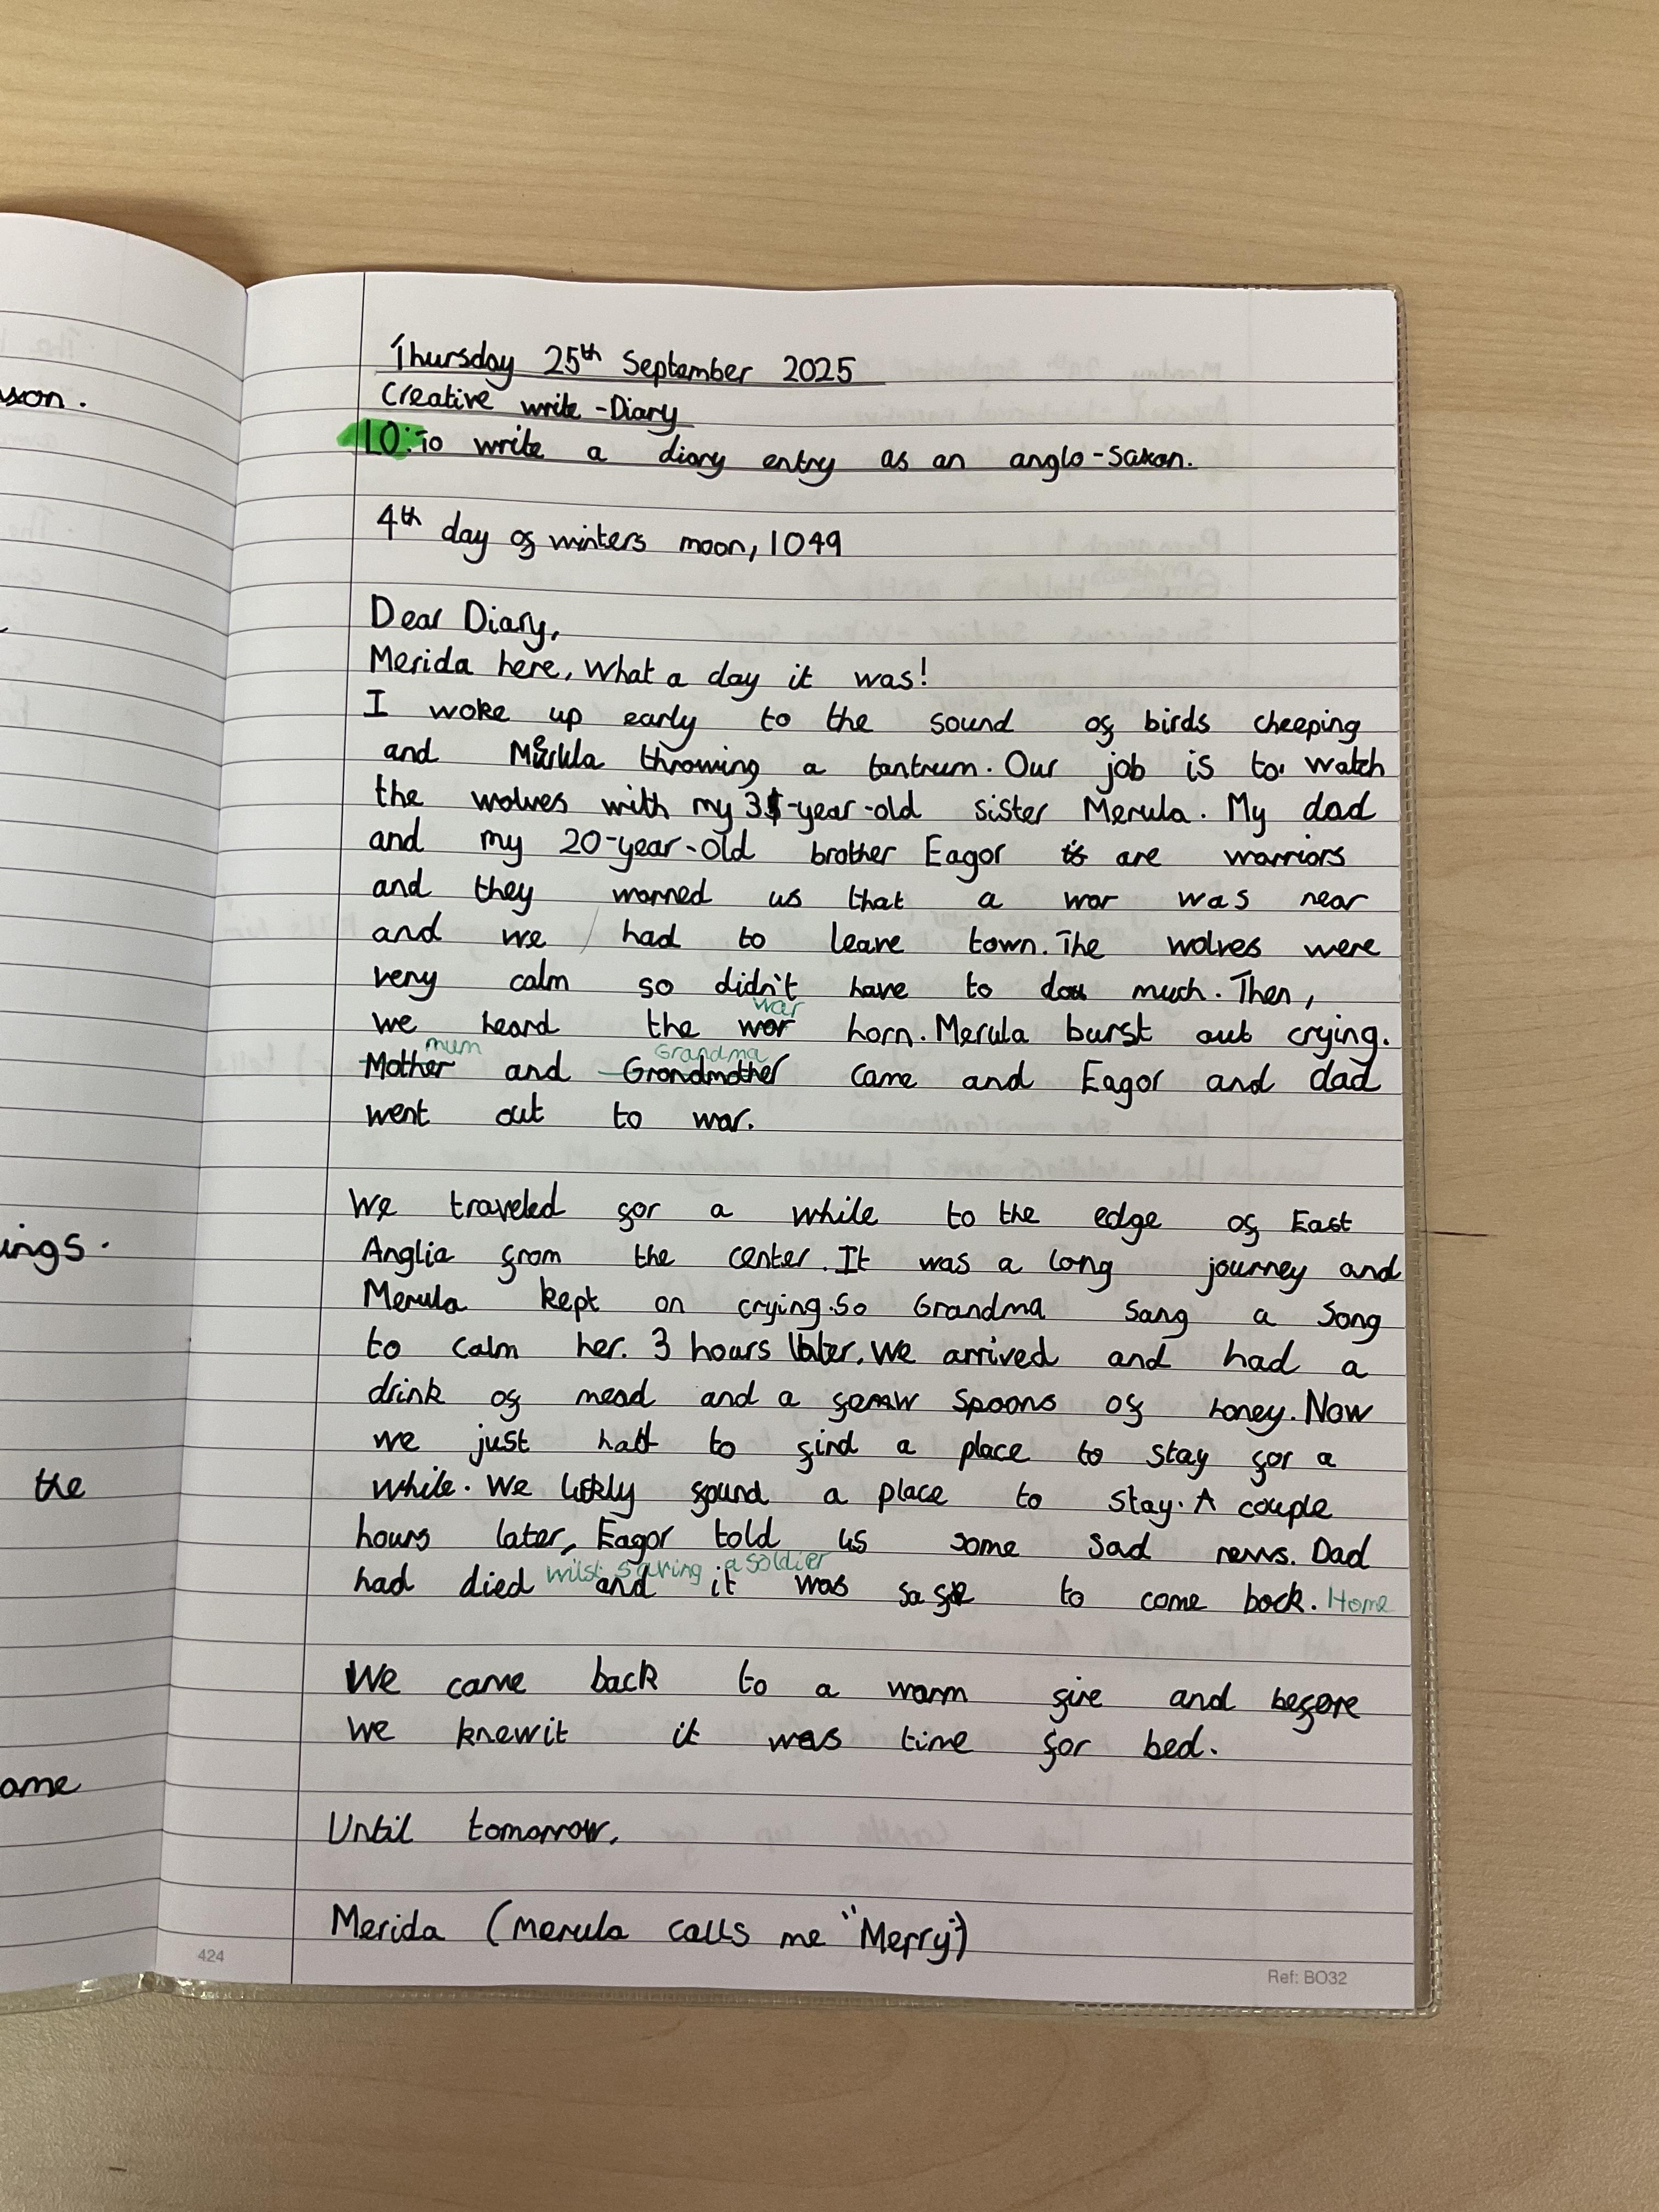 son.
ings.
the
ame
Thursday 25th September 2025
Creative write - Diary
LO: To write a diary entry as an anglo-saxon.
4th day of winters moon, 1049
Dear Diary,
Merida here, What a day it was!
I woke up early to the sound of birds cheeping
and Merula throwing a tantrum. Our job is to watch
the wolves with my 3-year-old sister Merula. My dad
and my 20-year-old brother Eagor are warriors
and they warned us that a war was near
and we had to leave town. The wolves were
very calm so didn't have to do much. Then,
war
we heard the wor horn. Merula burst out crying.
mum Grandma
Mother and Grandmother came and Eagor and dad
went out to war.
We traveled for a while to the edge of East
Anglia from the center. It was a long journey and
Merula kept on crying. So Grandma sang a song
to calm her. 3 hours later, we arrived and had a
drink of mead and a few spoons of honey. Now
we just had to find a place to stay for a
while. We lukly found a place to stay. A couple
hours later, Eagor told us some sad news. Dad
wilst saving a soldier
had died and it was safe to come back. Home
We came back to a warm fire and before
we knewit it was time for bed.
Until tomorrow,
Merida (merula calls me "Merry")
424
Ref: BO32